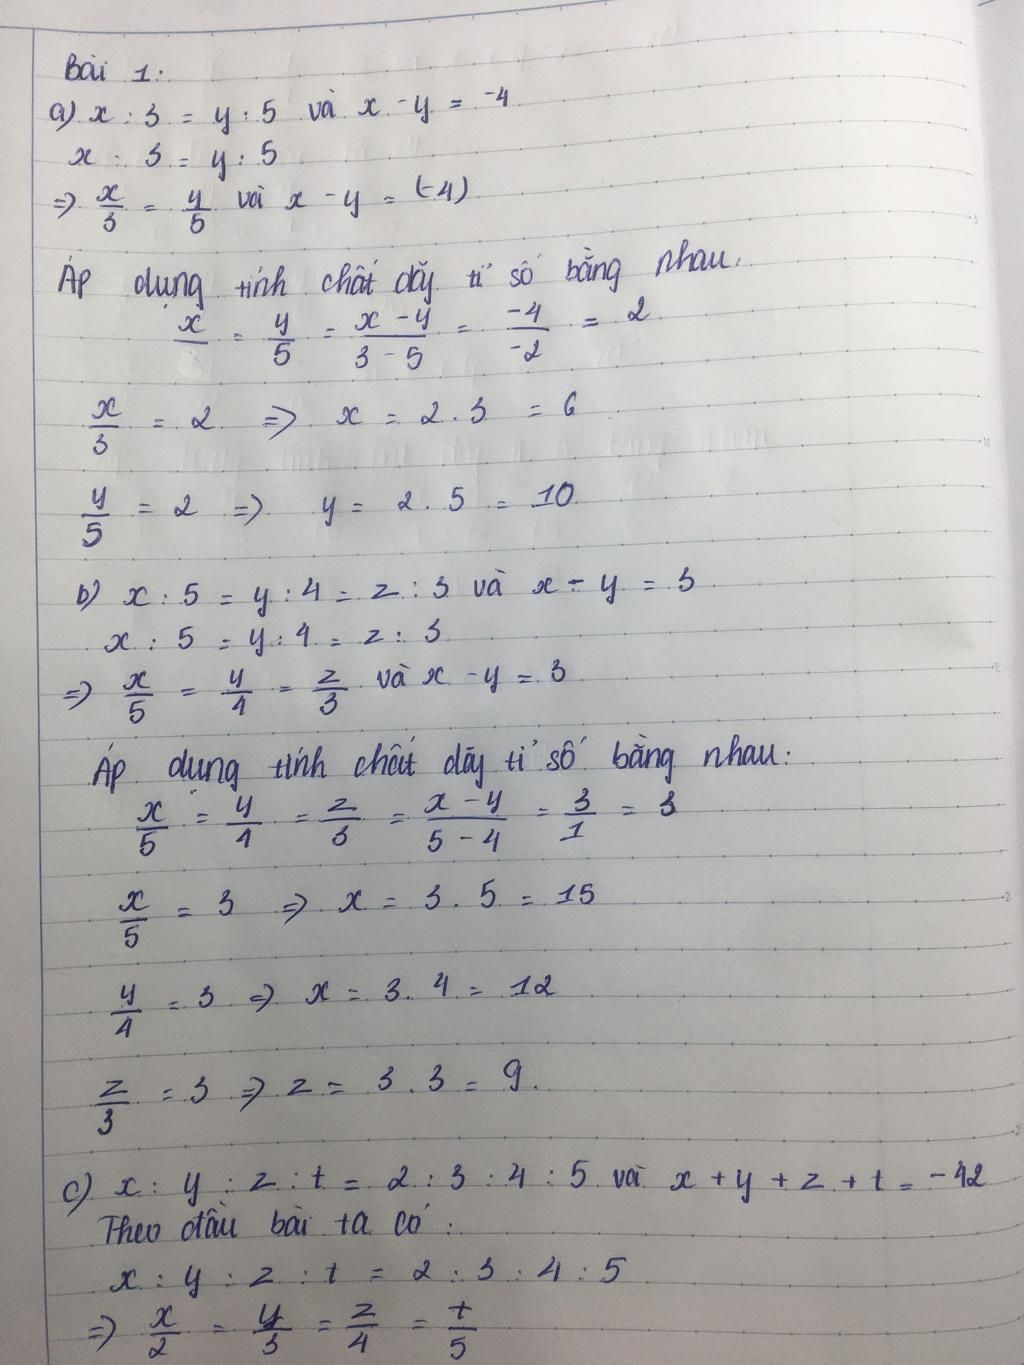 Bài 1:
a) x : 3 = y : 5 và x - y = -4
x : 3 = y : 5
=> x/3 = y/5 và x - y = (-4)
Áp dụng tính chất dãy tỉ số bằng nhau:
x/ = y/5 = (x - y)/(3 - 5) = -4/-2 = 2
x/3 = 2 => x = 2 . 3 = 6
y/5 = 2 => y = 2 . 5 = 10
b) x : 5 = y : 4 = z : 3 và x - y = 3
x : 5 = y : 4 = z : 3
=> x/5 = y/4 = z/3 và x - y = 3
Áp dụng tính chất dãy tỉ số bằng nhau:
x/5 = y/4 = z/3 = (x - y)/(5 - 4) = 3/1 = 3
x/5 = 3 => x = 3 . 5 = 15
y/4 = 3 => x = 3 . 4 = 12
z/3 = 3 => z = 3 . 3 = 9.
c) x : y : z : t = 2 : 3 : 4 : 5 và x + y + z + t = -42
Theo đầu bài ta có:
x : y : z : t = 2 : 3 : 4 : 5
=> x/2 = y/3 = z/4 = t/5